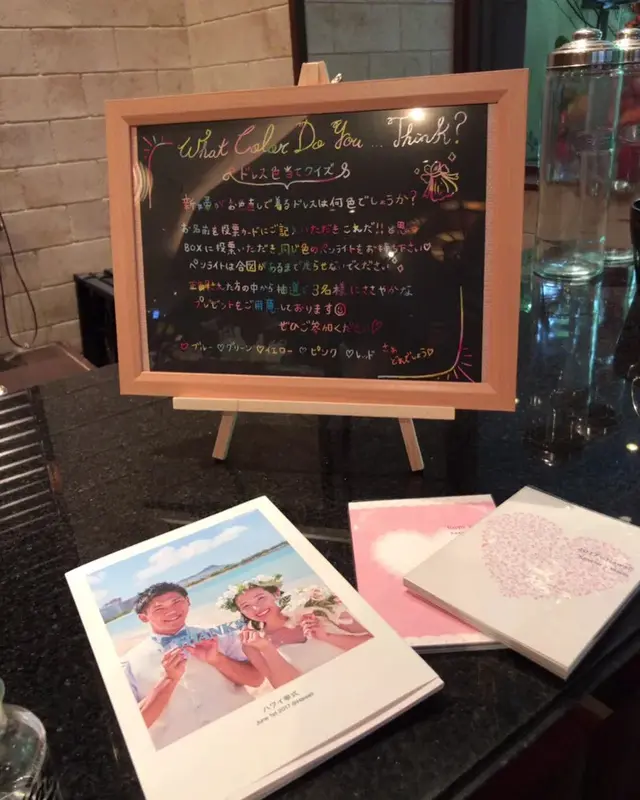 What Color Do You ... Think?
ドレス色当てクイズ
新婦がお色直しで着るドレスは何色でしょうか?
お名前を投票カードにご記入いただき これだ!!と思う
BOXに投票いただき、同じ色のペンライトをお持ち下さい♡
ペンライトは合図があるまで光らせないでください
正解された方の中から抽選で3名様にささやかな
プレゼントをご用意しております
ぜひご参加ください♡
♡ブルー ♡グリーン ♡イエロー ♡ピンク ♡レッド
さぁ どれでしょう♡
THANKS
ハワイ挙式
June 1st 2017